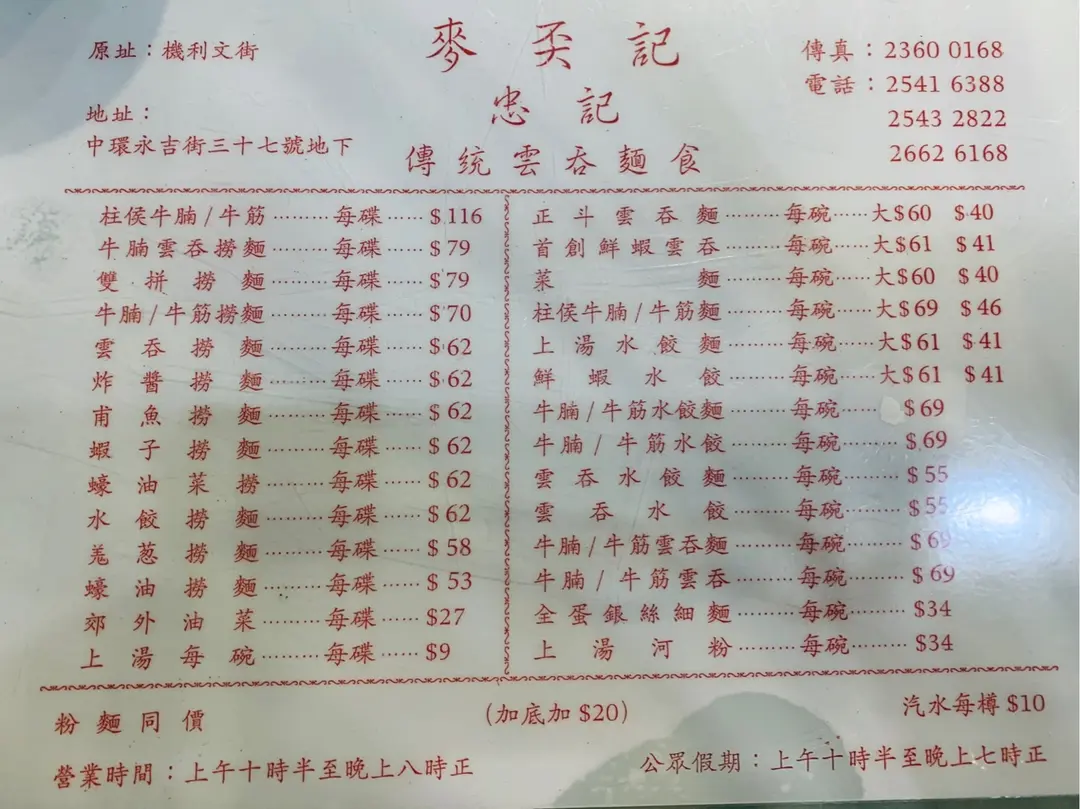 原址：機利文街
地址：
中環永吉街三十七號地下
麥奀記
忠記
傳統雲吞麵食
傳真：2360 0168
電話：2541 6388
2543 2822
2662 6168
柱侯牛腩/牛筋………每碟……$116
牛腩雲吞撈麵………每碟……$79
雙拼撈麵………每碟……$79
牛腩/牛筋撈麵………每碟……$70
雲吞撈麵………每碟……$62
炸醬撈麵………每碟……$62
甫魚撈麵………每碟……$62
蝦子撈麵………每碟……$62
蠔油菜撈………每碟……$62
水餃撈麵………每碟……$62
羗葱撈麵………每碟……$58
蠔油撈麵………每碟……$53
郊外油菜………每碟……$27
上湯每碗………每碟……$9
正斗雲吞麵………每碗……大$60 $40
首創鮮蝦雲吞………每碗……大$61 $41
菜麵………每碗……大$60 $40
柱侯牛腩/牛筋麵………每碗……大$69 $46
上湯水餃麵………每碗……大$61 $41
鮮蝦水餃………每碗……大$61 $41
牛腩/牛筋水餃麵………每碗……$69
牛腩/牛筋水餃………每碗………$69
雲吞水餃麵………每碗………$55
雲吞水餃………每碗………$55
牛腩/牛筋雲吞麵………每碗………$69
牛腩/牛筋雲吞………每碗………$69
全蛋銀絲細麵………每碗………$34
上湯河粉………每碗………$34
粉麵同價
(加底加 $20)
汽水每樽 $10
營業時間：上午十時半至晚上八時正
公眾假期：上午十時半至晚上七時正